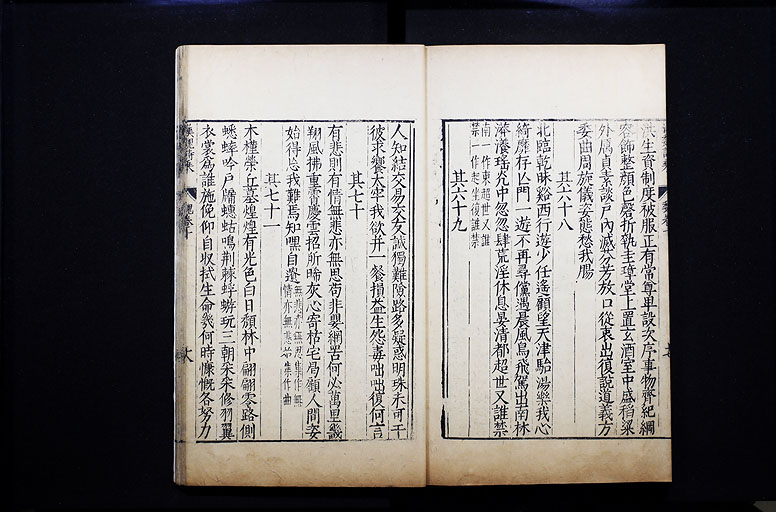 洪生資制度被服正有常尊卑設次序事物齊紀綱
容飾整顏色磬折執圭璋堂上置玄酒室中盛稻粱
外厲貞素談戶內滅芬芳放口從衷出復說道義方
委曲周旋儀姿態愁我腸
其六十八
北臨乾昧谿西行遊少任遙顧望天津駘湯樂我心
綺靡存亾門一遊不再尋儻遇晨風鳥飛駕出南林
漭瀁瑶光中忽忽肆荒淫休息晏清都超世又誰禁
南一作東超世又誰
禁一作起坐復誰禁
其六十九
人知結交易交友誠獨難險路多疑惑明珠未可干
彼求饗太牢我欲并一餐損益生怨毒咄咄復何言
其七十
有悲則有情無悲亦無思苟非嬰網罟何必萬里畿
翔風拂重霄慶雲招所晞灰心寄枯宅曷顧人間姿
始得忘我難焉知嘿自遺
無悲亦無思集作無
情亦無悲始集作曲
其七十一
木槿榮丘墓煌煌有光色白日頹林中翩翩零路側
蟋蟀吟戶牖蟪蛄鳴荆棘蜉蝣玩三朝采采修羽翼
衣裳為誰施俛仰自收拭生命幾何時慷慨各努力